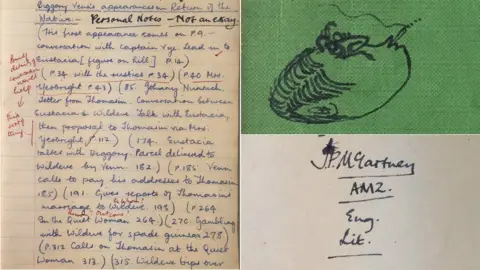 Diggory Venn's appearances in Return of the
Native:- Personal Notes - Not an essay
(This first appearance comes on P.9.-
conversation with Captain Vye. Lead in to
Eustacia [figure on hill] P.14)
(P.34 with the rustics P.34) (P.40 Mrs.
Yeobright P.43) (85. Johnny Nunsuch
letter from Thomasin. Conversation between
Eustacia & Wildeve Talk with Eustacia,
then proposal to Thomasin via Mrs.
Yeobright. P.112) (174. Eustacia
talks with Diggory. Parcel delivered to
Wildeve by Venn. 182.) (P.185. Venn
calls to pay his addresses to Thomasin
185) (191. Gives reports of Thomasin's
marriage to Wildeve. 193) (P.264
In the Quiet Woman 264.) (270. Gambling
with Wildeve for spade guineas 278)
(P.312 Calls on Thomasin at the Quiet
Woman 313.) (315. Wildeve trips over
details of
would
help
This
only
thing
Outcome?
J.P. McCartney
AM2.
Eng.
Lit.